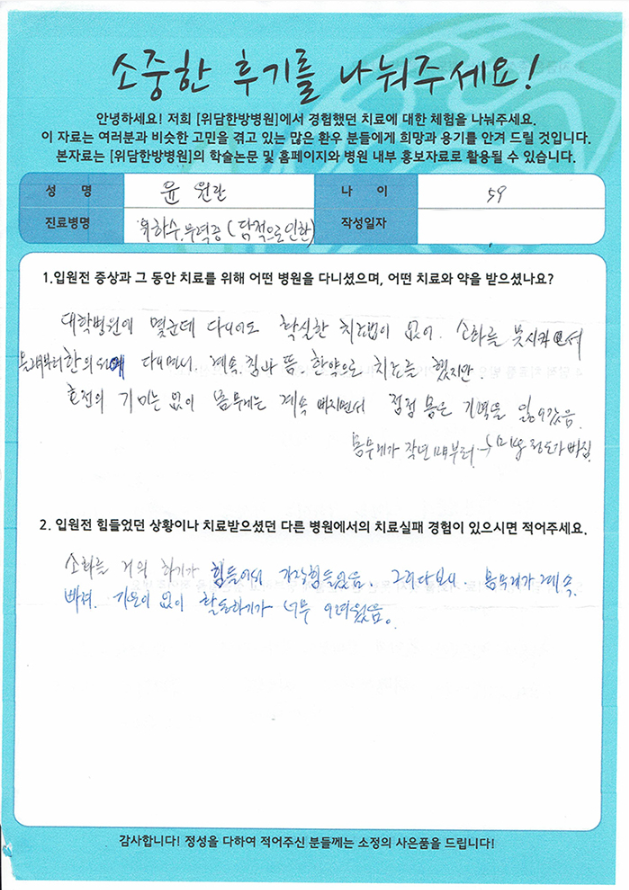 소중한 후기를 나눠주세요!
안녕하세요! 저희 [위담한방병원]에서 경험했던 치료에 대한 체험을 나눠주세요.
이 자료는 여러분과 비슷한 고민을 겪고 있는 많은 환우 분들에게 희망과 용기를 안겨 드릴 것입니다.
본자료는 [위담한방병원]의 학술논문 및 홈페이지와 병원 내부 홍보자료로 활용될 수 있습니다.
성 명 윤원란 나 이 59
진료병명 위하수.무력증 (담적으로인한) 작성일자
1.입원전 증상과 그 동안 치료를 위해 어떤 병원을 다니셨으며, 어떤 치료와 약을 받으셨나요?
대학병원에 몇군데 다녀도 확실한 치료법이 없어. 소화를 못시켜
한의원에 다니면서. 계속.침과 뜸.한약으로 치료를 했지만.
호전의 기미는 없이 몸무게는 계속 빠지면서 점점 몸은 기력을 잃어갔음
몸무게가 작년 부터 → 정도가 빠짐
2. 입원전 힘들었던 상황이나 치료받으셨던 다른 병원에서의 치료실패 경험이 있으시면 적어주세요.
소화를 거의 하기가 힘들어서 가장힘들었음. 그러다보니. 몸무게가 계속.
빠져. 기운이 없이 활동하기가 너무 어려웠음.
감사합니다! 정성을 다하여 적어주신 분들께는 소정의 사은품을 드립니다!